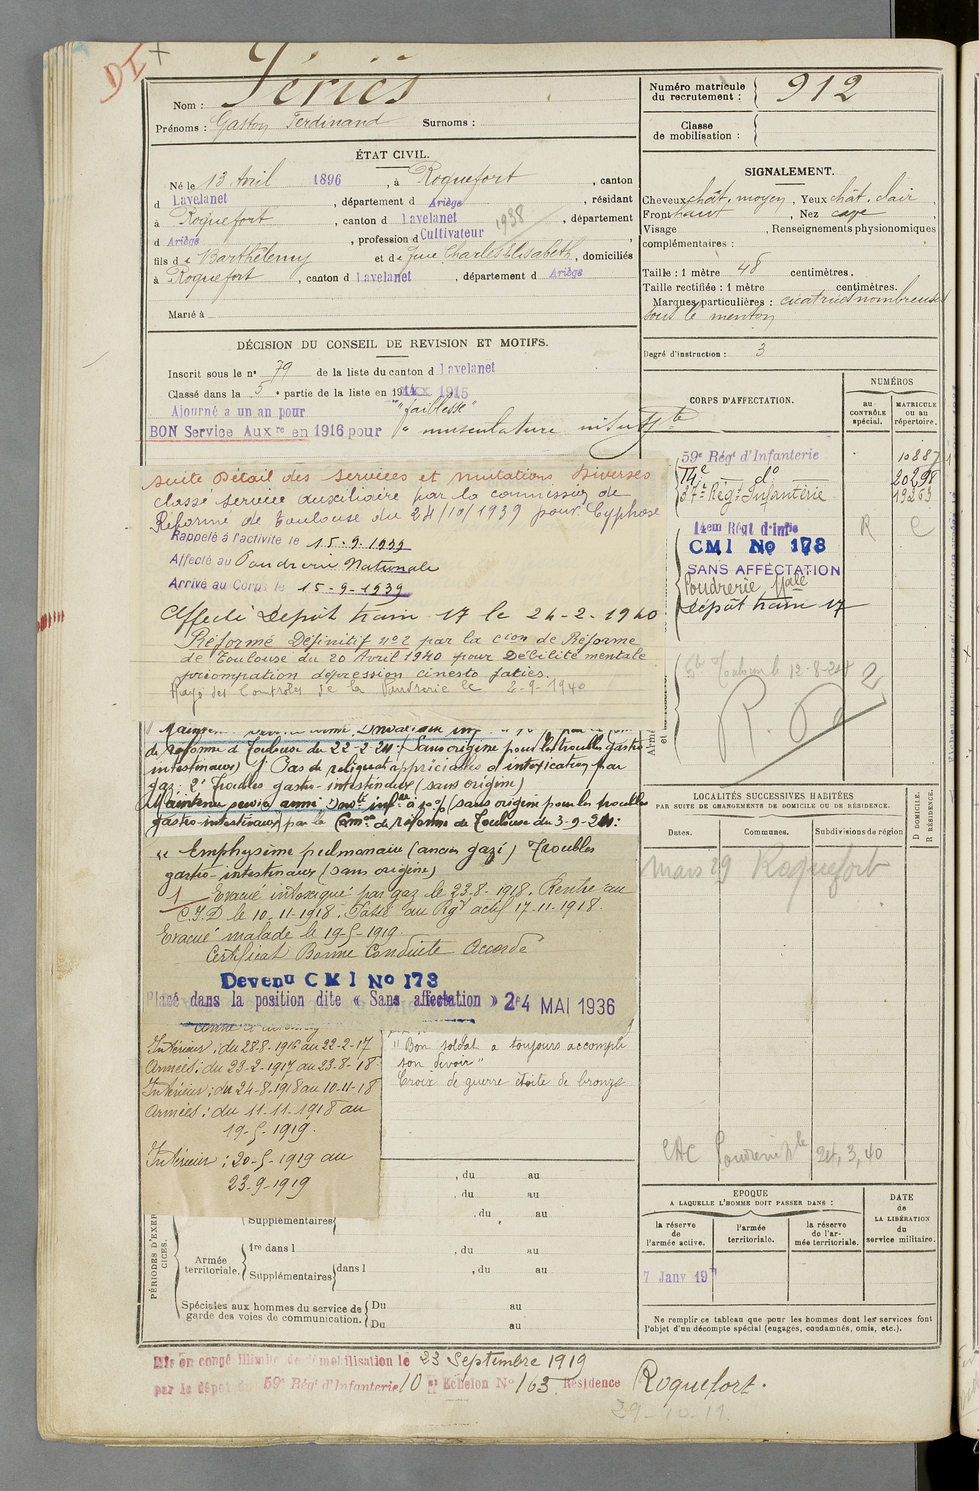 DI +
Nom : Fériés
Prénoms : Gaston Ferdinand Surnoms :
ÉTAT CIVIL.
Né le 13 Avril 1896, à Roquefort, canton
d Lavelanet, département d Ariège, résidant
à Roquefort, canton d Lavelanet 1938, département
d Ariège, profession d Cultivateur,
fils d e Barthélemy et d e June Charles Elisabeth, domiciliés
à Roquefort, canton d Lavelanet, département d Ariège
Marié à
Numéro matricule
du recrutement : 912
Classe
de mobilisation :
SIGNALEMENT.
Cheveux chât. moyen, Yeux chât. clair,
Front haut, Nez cave,
Visage , Renseignements physionomiques
complémentaires :
Taille : 1 mètre 48 centimètres.
Taille rectifiée : 1 mètre centimètres.
Marques particulières : cicatrices nombreuses
sous le menton
Degré d'instruction : 3
DÉCISION DU CONSEIL DE REVISION ET MOTIFS.
Inscrit sous le n° 79 de la liste du canton d Lavelanet
Classé dans la 5e partie de la liste en 19 1915
Ajourné a un an pour "faiblesse"
BON Service Auxre en 1916 pour "musculature insuffte
Suite Détail des Services et mutations Diverses
Classé service auxiliaire par la commission de
Réforme de Toulouse du 24/10/1939 pour Cyphose
Rappelé à l'activité le 15-9-1939
Affecté au Poudrerie Nationale
Arrivé au Corps le 15-9-1939
Affecté Dépôt train 17 le 24-2-1940
Réformé Définitif n°2 par la cion de Réforme
de Toulouse du 20 Avril 1940 pour Débilité mentale
dépression
Rayé des Contrôles de la Poudrerie le 2-9-1940
de réforme de Toulouse du 22-2-24: Sans origine pour les troubles gastro
intestinaux) 1° Pas de reliquat appréciable d'intoxication par
gaz; 2° Troubles gastro-intestinaux (sans origine)
Maintenu service armé Invte infre à 10% (sans origine pour les troubles
gastro-intestinaux) par la Comon de réforme de Toulouse du 3-9-24:
"Emphysème pulmonaire (ancien gazé) Troubles
gastro-intestinaux (sans origine)
1 Evacué intoxiqué par gaz le 23-8-1918. Rentré au
C.I.D le 10-11-1918. Passé au Rgt actif 17-11-1918.
Evacué malade le 19-5-1919
Certificat Bonne Conduite Accordé
Devenu CMI No 173
Placé dans la position dite « Sans affectation » 24 MAI 1936
Intérieur : du 28-8-1916 au 22-2-17
Armées : du 23-2-1917 au 23-8-18
Intérieur : du 24-8-1918 au 10-11-18
Armées : du 11-11-1918 au
19-5-1919.
Intérieur : 20-5-1919 au
23-9-1919
"Bon soldat a toujours accompli
son devoir"
Croix de guerre étoile de bronze
, du au
, du au
Supplémentaires , du au
PÉRIODES D'EXERCICES.
Armée
territoriale.
1re dans l , du au
Supplémentaires dans l , du au
Spéciales aux hommes du service de
garde des voies de communication.
Du au
Du au
CORPS D'AFFECTATION.
NUMÉROS
au
CONTRÔLE
spécial.
MATRICULE
OU AU
répertoire.
59e Régt d'Infanterie 10887
14e do 20298
37e Régt Infanterie 19263
14em Régt d'Infie R C
CMI No 173
SANS AFFECTATION
Poudrerie Nale
Dépôt train 17
Toulouse le 12-8-24
R.D. 2
LOCALITÉS SUCCESSIVES HABITÉES
PAR SUITE DE CHANGEMENTS DE DOMICILE OU DE RÉSIDENCE.
Dates. Communes. Subdivisions de région
D DOMICILE.
R RÉSIDENCE.
Mars 29 Roquefort
CAC Poudrerie Nle 24,3,40
EPOQUE
A LAQUELLE L'HOMME DOIT PASSER DANS :
la réserve
de
l'armée active.
l'armée
territoriale.
la réserve
de l'ar-
mée territoriale.
DATE
de
LA LIBÉRATION
du
service militaire.
7 Janv 19
Ne remplir ce tableau que pour les hommes dont les services font
l'objet d'un décompte spécial (engagés, condamnés, omis, etc.).
Mis en congé illimité de démobilisation le 23 Septembre 1919
par le dépôt du 59e Régt d'Infanterie 10e Echelon No 163 Résidence Roquefort.
29-10-19.